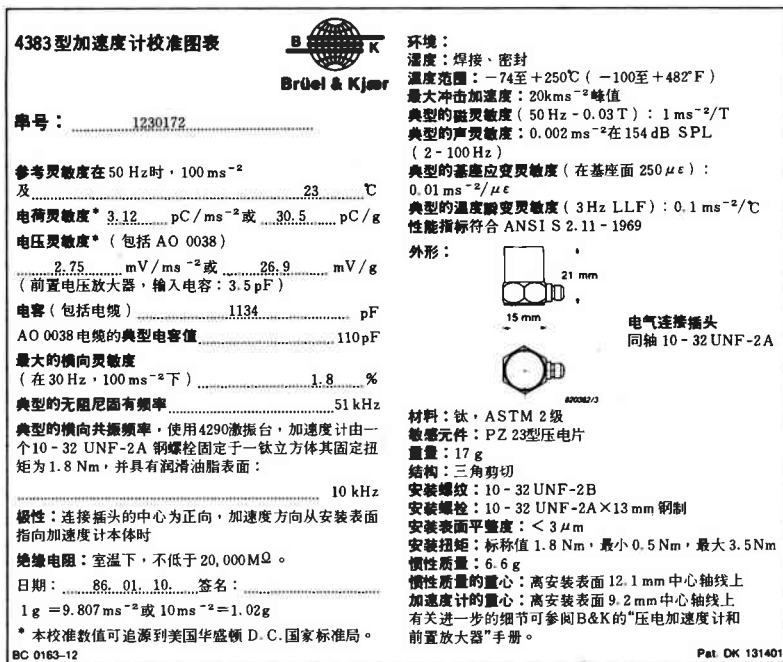 4383型加速度计校准图表
B K
Brüel & Kjær
串号：1230172
参考灵敏度在50 Hz时，100 ms⁻²
及 23 ℃
电荷灵敏度* 3.12 pC/ms⁻²或 30.5 pC/g
电压灵敏度*（包括 AO 0038）
2.75 mV/ms⁻²或 26.9 mV/g
（前置电压放大器，输入电容：3.5 pF）
电容（包括电缆） 1134 pF
AO 0038 电缆的典型电容值 110 pF
最大的横向灵敏度
（在30 Hz，100 ms⁻²下） 1.8 %
典型的无阻尼固有频率 51 kHz
典型的横向共振频率，使用4290激振台，加速度计由一
个10-32 UNF-2A 钢螺栓固定于一钛立方体其固定扭
矩为1.8 Nm，并具有润滑油脂表面：
10 kHz
极性：连接插头的中心为正向，加速度方向从安装表面
指向加速度计本体时
绝缘电阻：室温下，不低于20,000MΩ。
日期：86. 01. 10. 签名：
1 g =9.807 ms⁻²或 10ms⁻²=1.02g
* 本校准数值可追源到美国华盛顿 D.C.国家标准局。
BC 0163-12
环境：
湿度：焊接、密封
温度范围：-74至+250℃（-100至+482°F）
最大冲击加速度：20kms⁻²峰值
典型的磁灵敏度（50 Hz - 0.03 T）：1 ms⁻²/T
典型的声灵敏度：0.002 ms⁻²在154 dB SPL
（2-100 Hz）
典型的基座应变灵敏度（在基座面 250 με）：
0.01 ms⁻²/με
典型的温度瞬变灵敏度（3Hz LLF）：0.1 ms⁻²/℃
性能指标符合 ANSI S 2.11-1969
外形：
21 mm
15 mm
电气连接插头
同轴 10-32 UNF-2A
820382/3
材料：钛，ASTM 2级
敏感元件：PZ 23型压电片
重量：17 g
结构：三角剪切
安装螺纹：10-32 UNF-2B
安装螺栓：10-32 UNF-2A×13 mm 钢制
安装表面平整度：< 3 μm
安装扭矩：标称值 1.8 Nm，最小 0.5 Nm，最大 3.5Nm
惯性质量：6.6 g
惯性质量的重心：离安装表面 12.1 mm 中心轴线上
加速度计的重心：离安装表面 9.2 mm 中心轴线上
有关进一步的细节可参阅B&K的“压电加速度计和
前置放大器”手册。
Pat. DK 131401